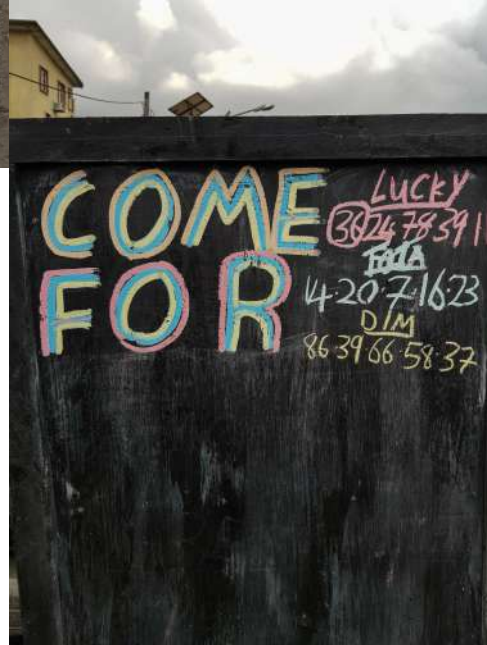 COME
FOR
LUCKY
36 24·78 39 1
14·20·7·16·23
D/M
86·39·66·58·37